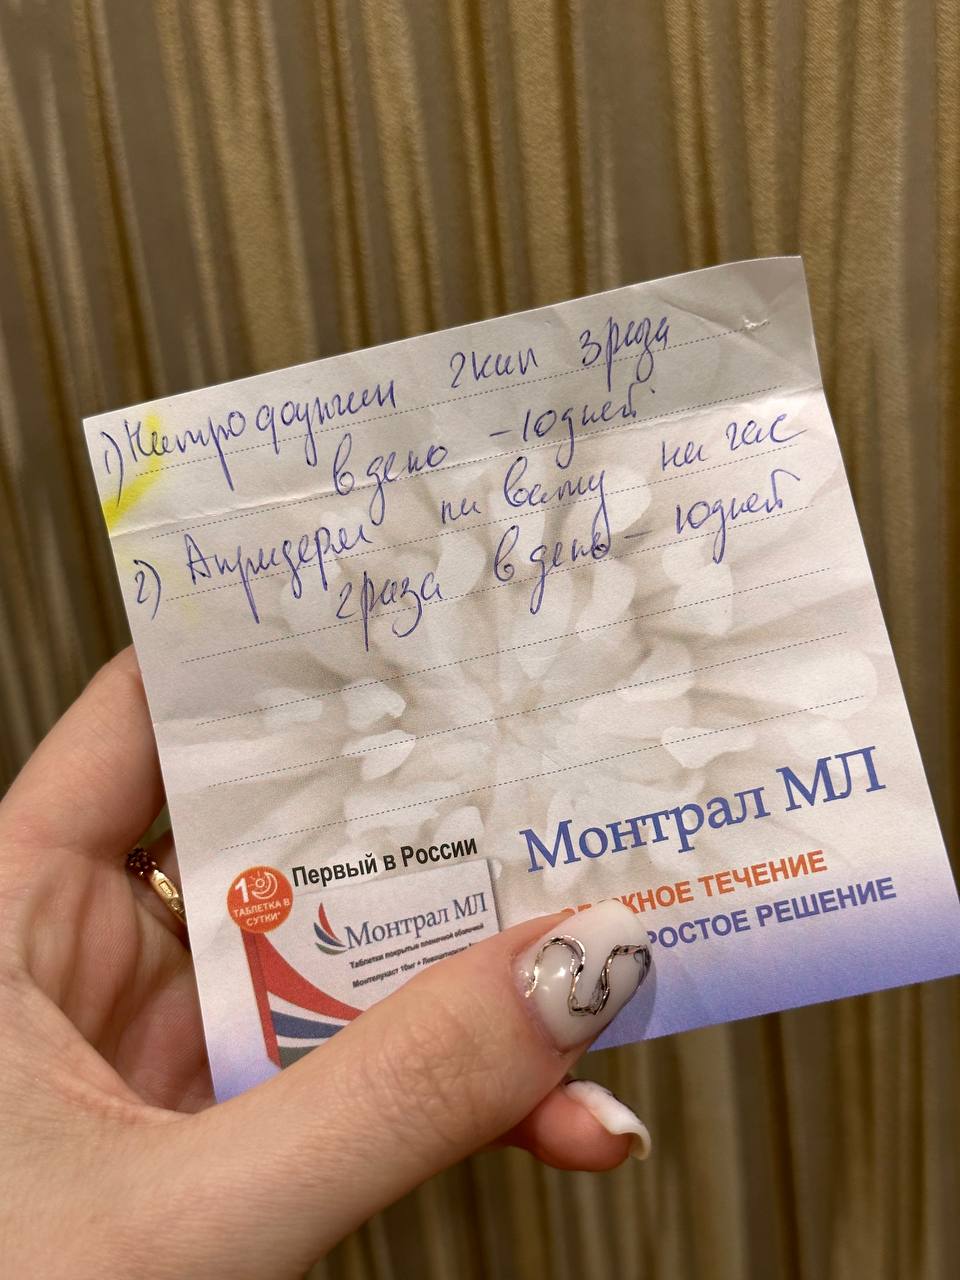 1) Нитро даунчин 2 кап 3 раза
в день - 10 дней
2) Акридерм на вату на час
2 раза в день - 10 дней
Монтрал МЛ
НОЕ ТЕЧЕНИЕ
РОСТОЕ РЕШЕНИЕ
Первый в России
1
ТАБЛЕТКА В
СУТКИ*
Монтрал МЛ
Таблетки покрытые пленочной оболочкой
Монтелукаст 10мг +